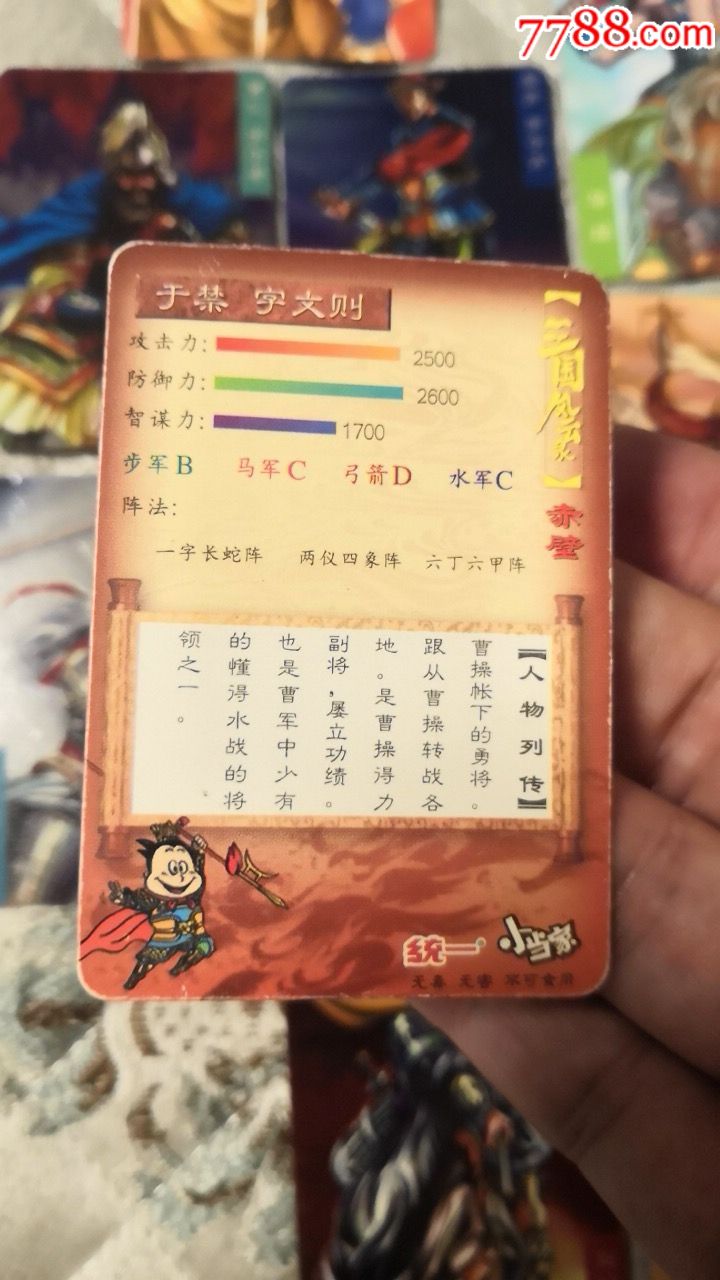 7788.com
于禁 字文则
攻击力: 2500
防御力: 2600
智谋力: 1700
步军B 马军C 弓箭D 水军C
阵法:
一字长蛇阵 两仪四象阵 六丁六甲阵
【三国风云录】
赤壁
【人物列传】
曹操帐下的勇将。
跟从曹操转战各
地。是曹操得力
副将,屡立功绩。
也是曹军中少有
的懂得水战的将
领之一。
统一 小当家
无毒 无害 不可食用